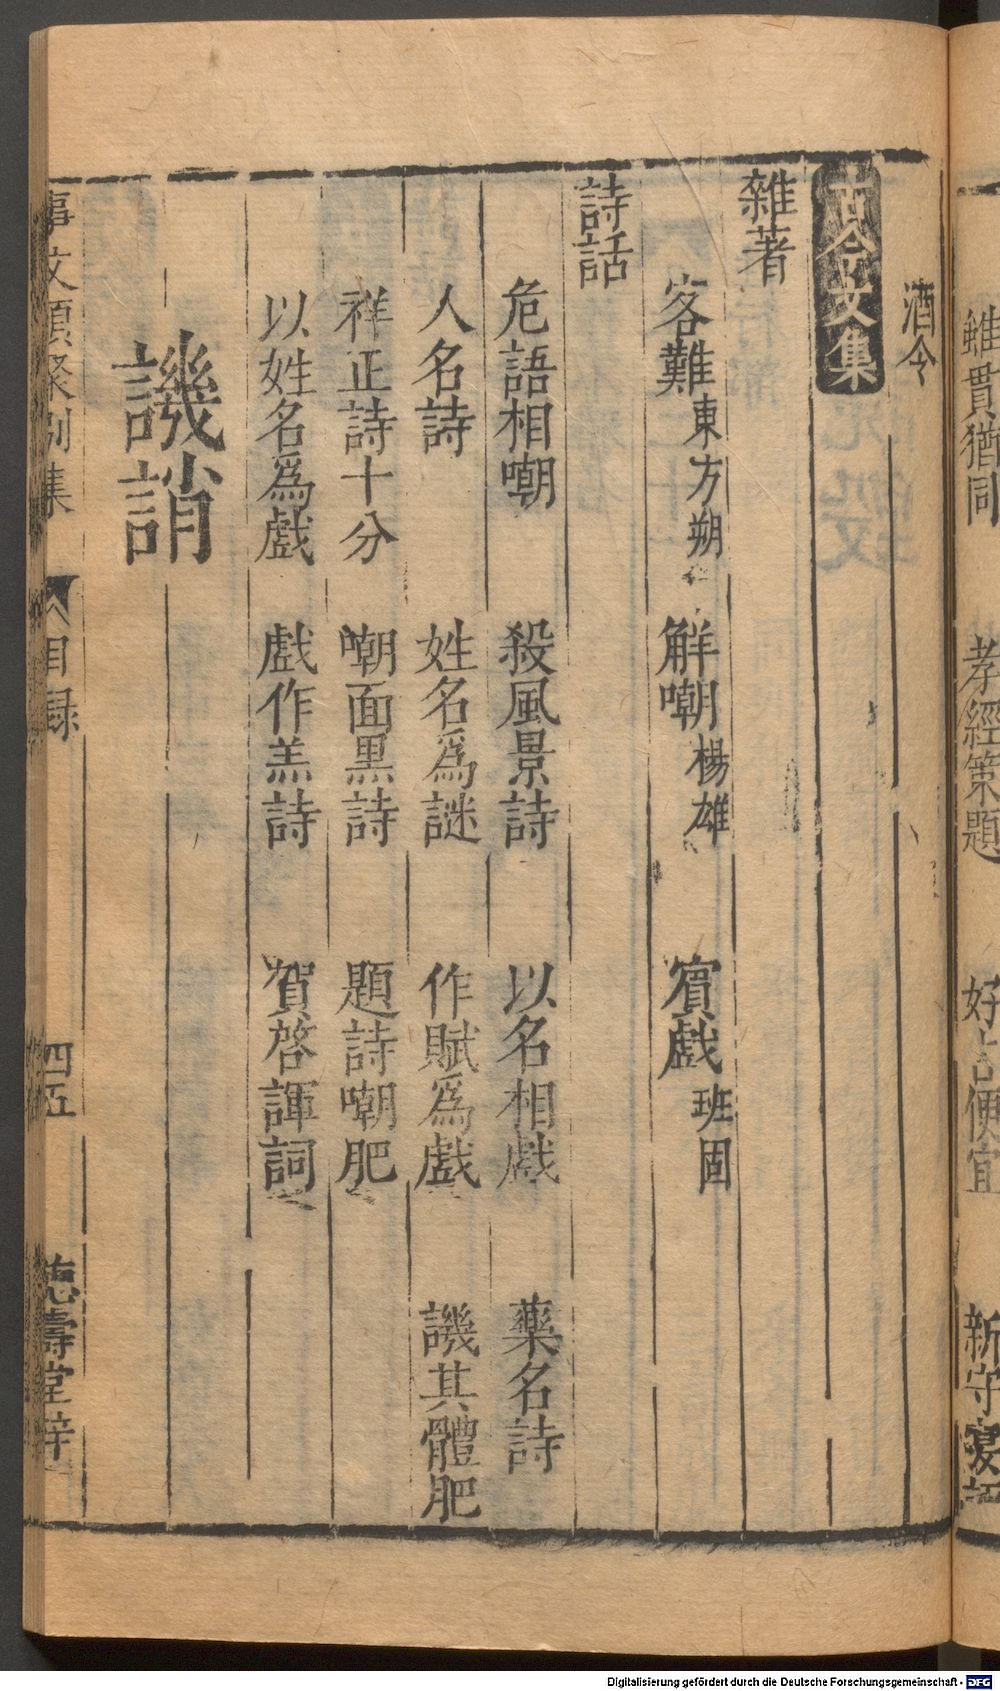 雖貫猶同　孝經策題　好古便宜　新守宴
酒令
古今文集
雜著
客難東方朔　解嘲楊雄　賓戲班固
詩話
危語相嘲　殺風景詩　以名相戲　藥名詩
人名詩　姓名爲謎　作賦爲戲　譏其體肥
祥正詩十分　嘲面黒詩　題詩嘲肥
以姓名爲戲　戲作羔詩　賀啓諢詞
譏誚
事文類聚別集　目録　四五　德壽堂梓
Digitalisierung gefördert durch die Deutsche Forschungsgemeinschaft - DFG